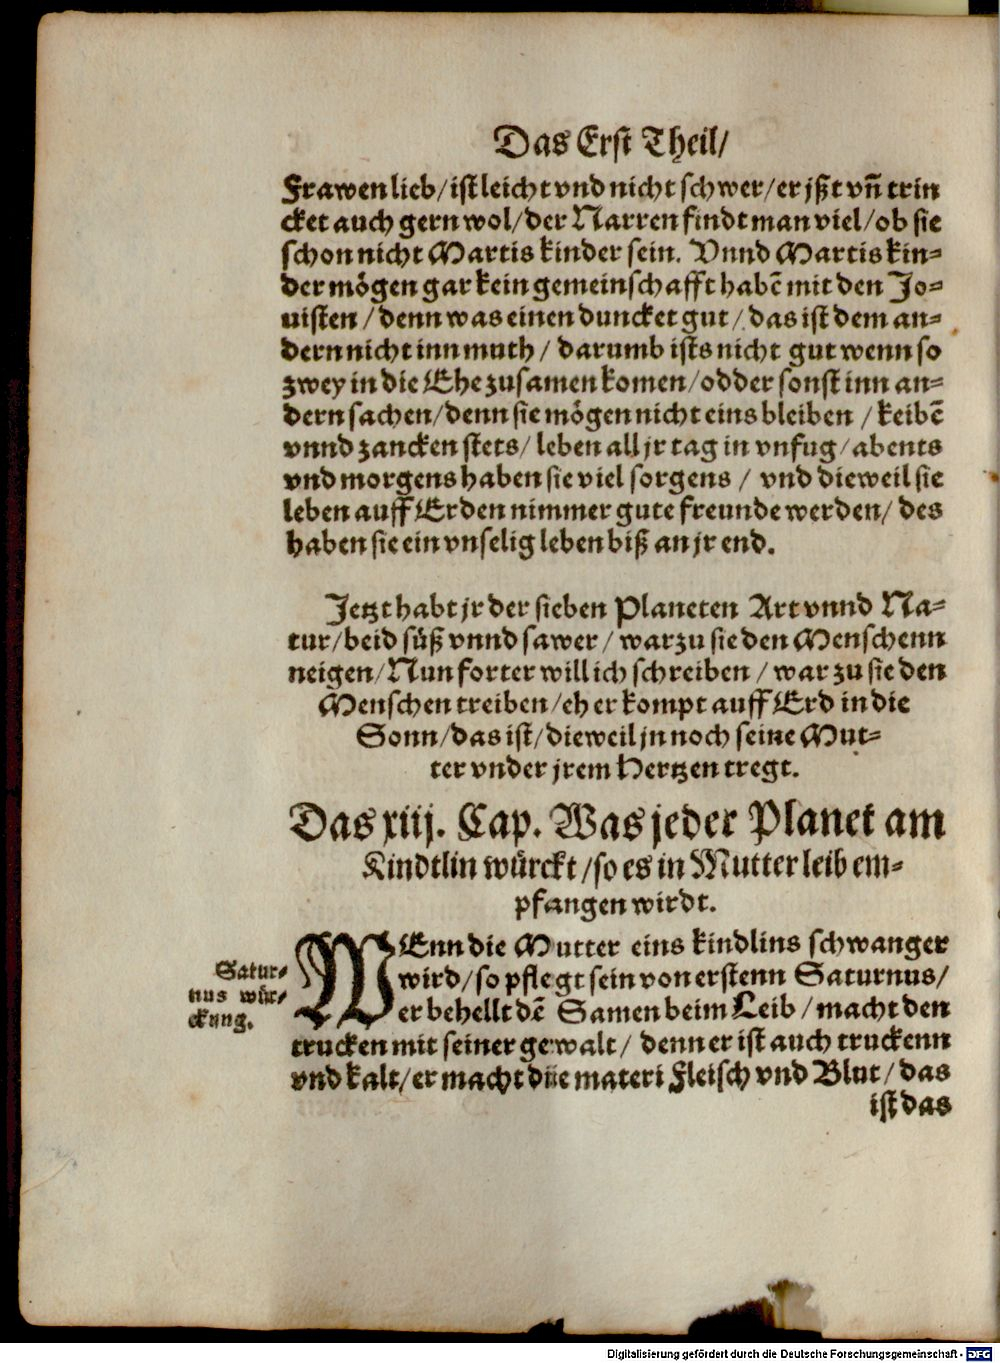 Das Erst Theil/
Frawen lieb/ ist leicht vnd nicht schwer/ er jßt vn̄ trin
cket auch gern wol/ der Narren findt man viel/ ob sie
schon nicht Martis kinder sein. Vnnd Martis kin-
der mögen gar kein gemeinschafft habē mit den Jo-
uisten/ denn was einen duncket gut/ das ist dem an-
dern nicht inn muth/ darumb ists nicht gut wenn so
zwey in die Ehe zusamen komen/ odder sonst inn an-
dern sachen/ denn sie mögen nicht eins bleiben/ keibē
vnnd zancken stets/ leben all jr tag in vnfug/ abents
vnd morgens haben sie viel sorgens/ vnd dieweil sie
leben auff Erden nimmer gute freunde werden/ des
haben sie ein vnselig leben biß an jr end.
Jetzt habt jr der sieben Planeten Art vnnd Na-
tur/ beid süß vnnd sawer/ warzu sie den Menschenn
neigen/ Nun forter will ich schreiben/ war zu sie den
Menschen treiben/ eh er kompt auff Erd in die
Sonn/ das ist/ dieweil jn noch seine Mut-
ter vnder jrem Hertzen tregt.
Das xiij. Cap. Was jeder Planet am
Kindtlin würckt/ so es in Mutter leib em-
pfangen wirdt.
WEnn die Mutter eins kindlins schwanger
wird/ so pflegt sein von erstenn Saturnus/
er behellt dē Samen beim Leib/ macht den
trucken mit seiner gewalt/ denn er ist auch truckenn
vnd kalt/ er macht die materi Fleisch vnd Blut/ das
ist das
Satur-
nus wür-
ckung.
Digitalisierung gefördert durch die Deutsche Forschungsgemeinschaft - DFG